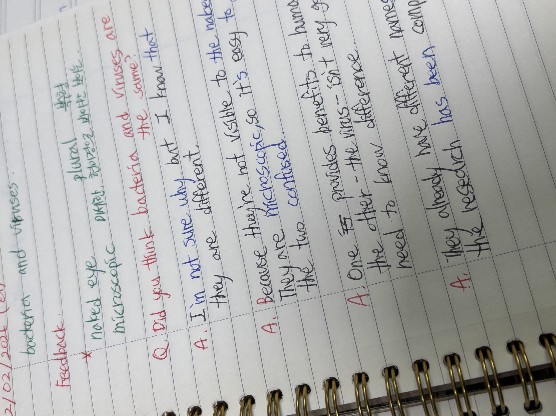 2/02/202
bacteria and viruses.
Feedback.
* naked eye plural 복수형
microscopic
Q. Did you think bacteria and viruses are
the same?
A. I'm not sure why but I know that
they are different.
A. Because they're not visible to the naked
They are microscopic, so it's easy to
the two confused.
A. One provides benefits to huma
the other - the virus - isn't very g
need to know difference.
A. They already have different names
the research has been comp